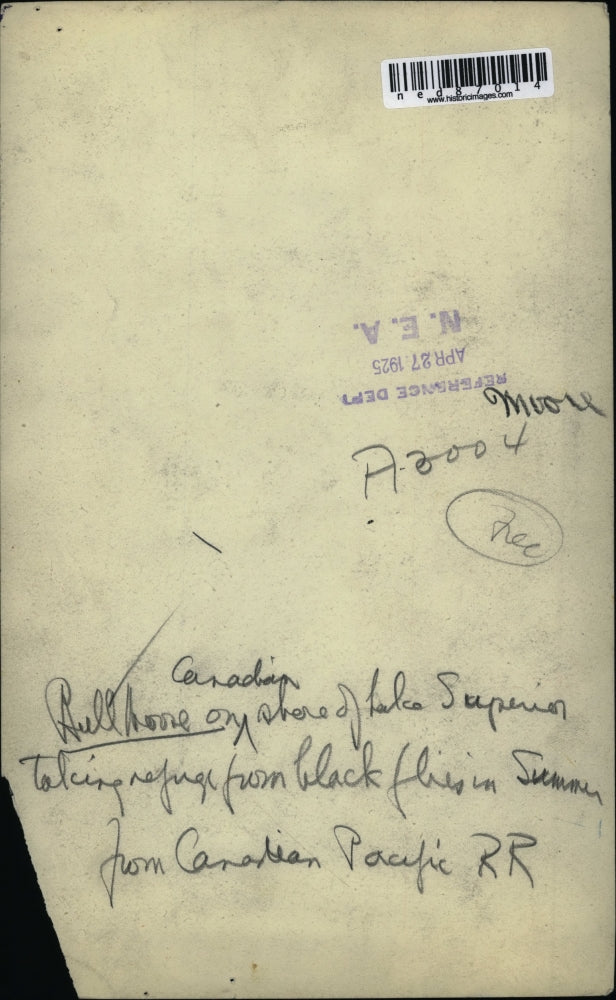 ned87014
www.historicimages.com
N. E. A.
APR 27 1925
REFERENCE DEPT.
Moose
A-3004
Free
Canadian
Bull moose on ^ shore of Lake Superior
taking refuge from black flies in Summer
from Canadian Pacific RR